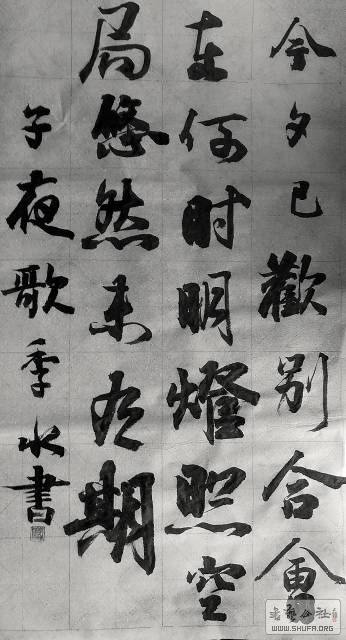 今夕已歡别合會
在何时明燈照空
局悠然未有期
子夜歌季水書
WWW.SHUFA.ORG